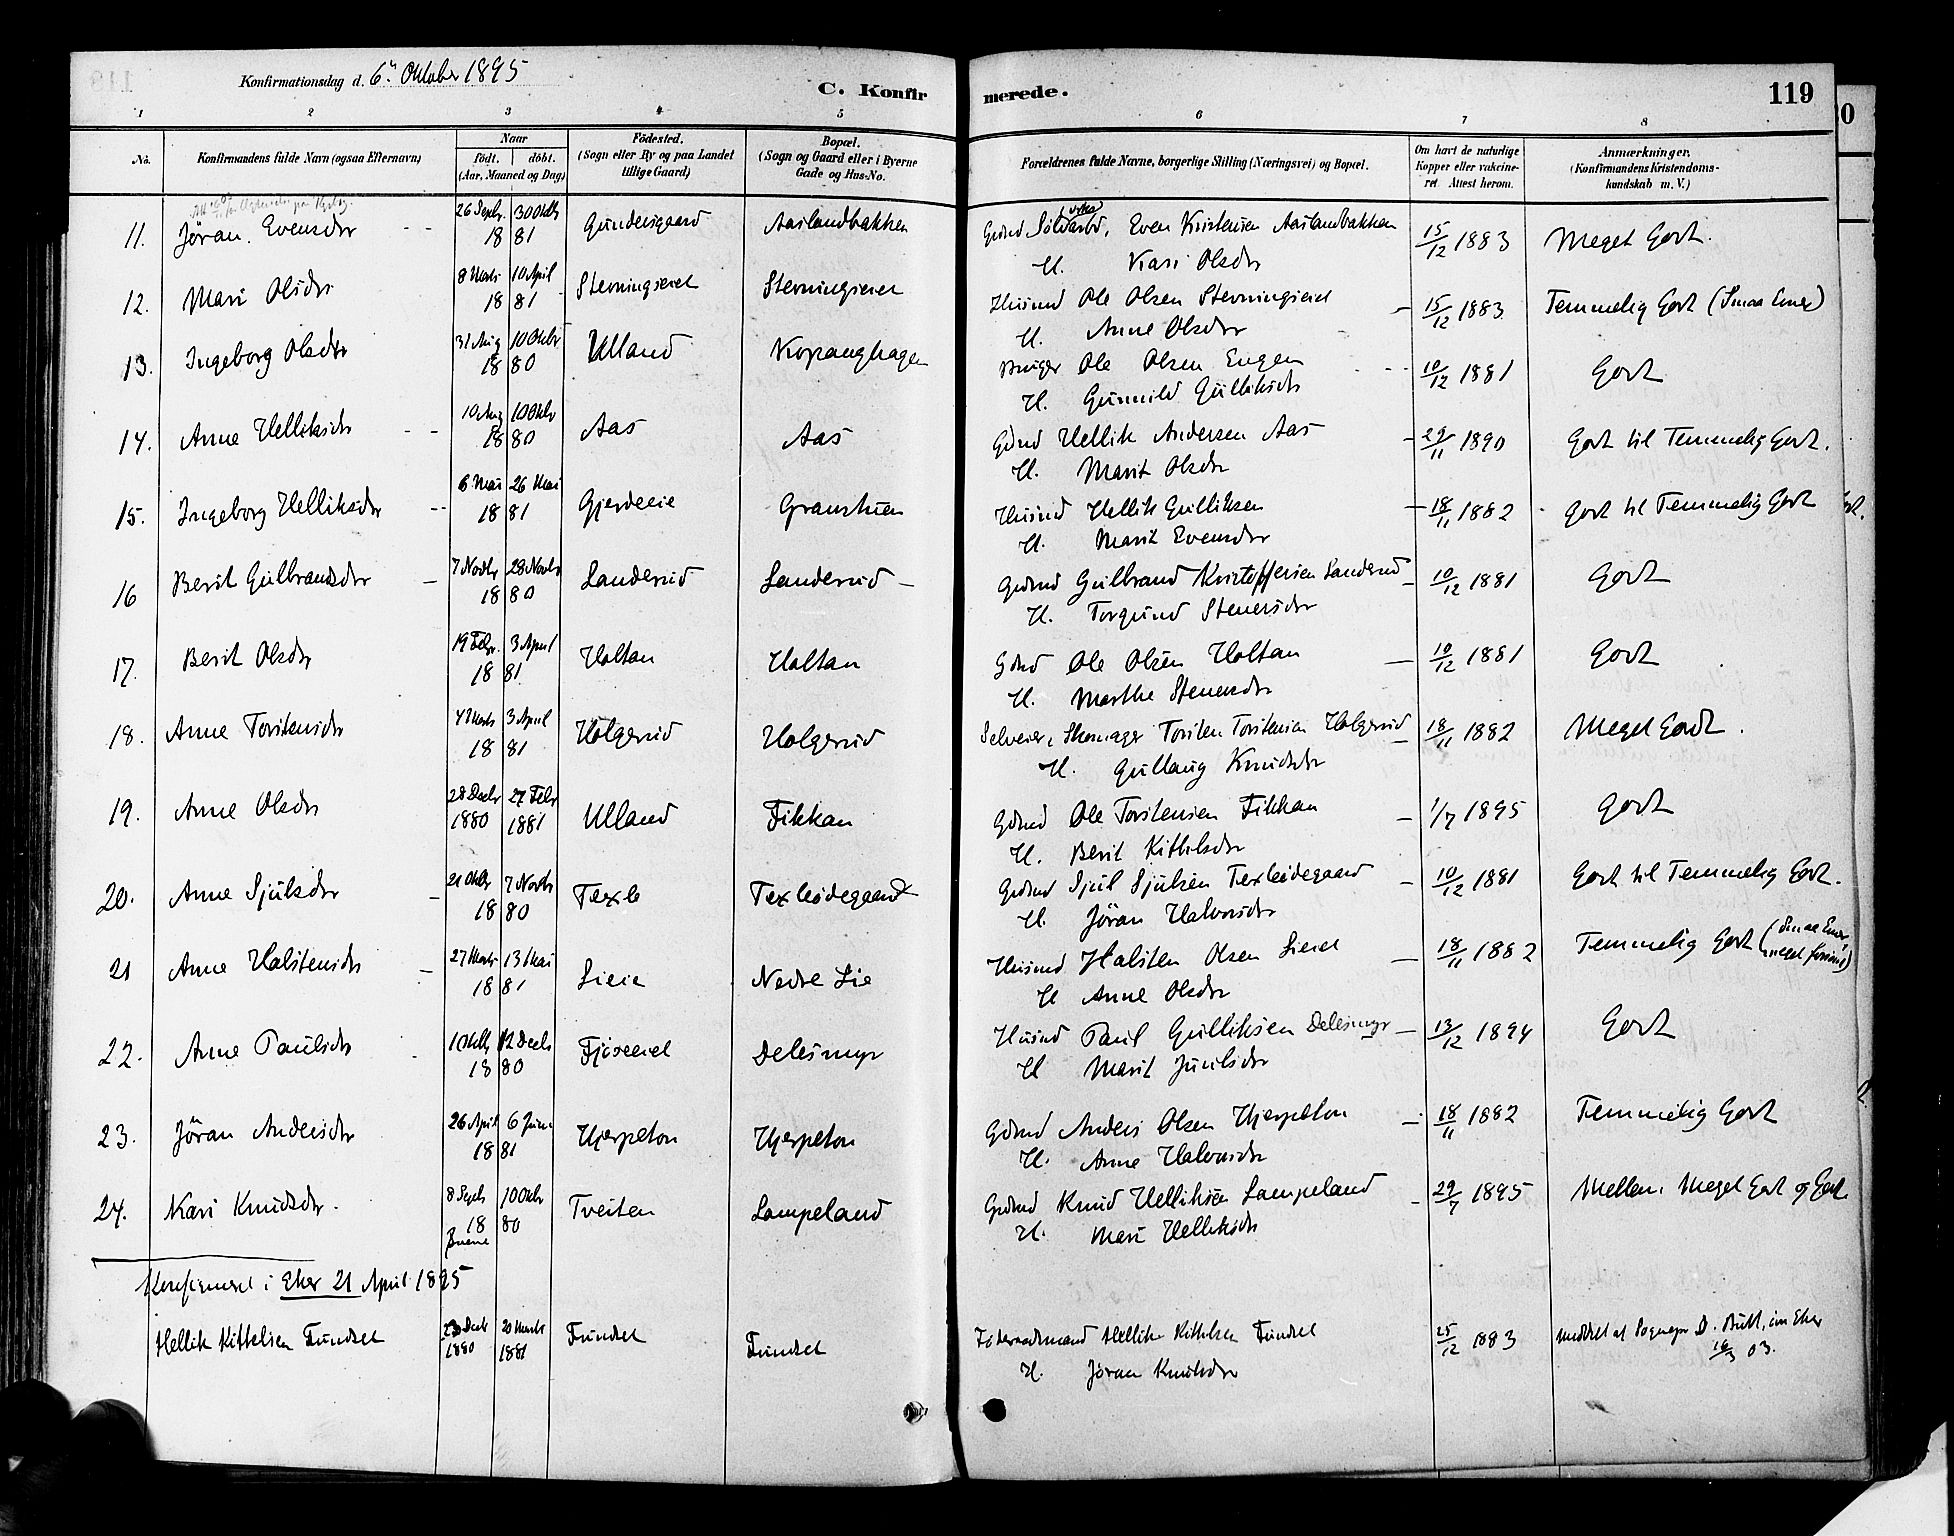 Konfirmationsdag d. 6te Oktober 1895
C. Konfirmerede.
119
1 2 3 4 5 6 7 8
No. Konfirmandens fulde Navn (ogsaa Efternavn) Naar födt. döbt. (Aar, Maaned og Dag) Födested. (Sogn eller By og paa Landet tillige Gaard) Bopæl. (Sogn og Gaard eller i Byerne Gade og Hus-No. Forældrenes fulde Navne, borgerlige Stilling (Næringsvei) og Bopæl. Om havt de naturlige Kopper eller vakcineret. Attest herom. Anmærkninger. (Konfirmandens Kristendomskundskab m. V.)
11. Jöran Evensdr 26 Septr. 30 Oktb 1881 Gundersgaard Aaslandbakken Gdmd Even Kristensen Aaslandbakken 15/12 1883 Meget Godt.
H. Kari Olsdr
12. Mari Olsdr 8 Marts 10 April 1881 Stevningseiet Stevningseiet Husmd Ole Olsen Stevningseiet 15/12 1883 Temmelig Godt (Smaa Evner)
H. Anne Olsdr
13. Ingeborg Olsdr 31 Aug 10 Oktbr 1880 Ulland Kopanghagen Bruger Ole Olsen Engen 10/12 1881 Godt
H. Gunnild Gulliksdr
14. Anne Helliksdr 10 Aug 10 Oktbr 1880 Aas Aas Gdmd Hellik Andersen Aas 29/11 1890 Godt til Temmelig Godt.
H. Marit Olsdr
15. Ingeborg Helliksdr 6 Mai 26 Mai 1881 Gjerdeeie Granstuen Husmd Hellik Gulliksen 18/11 1882 Godt til Temmelig Godt
H. Marit Evensdr
16 Berit Gulbrandsdr 7 Novbr 28 Novbr 1880 Landerud Landerud Gdmd Gulbrand Kristoffersen Landerud 10/12 1881 Godt
H. Torgund Stenersdr
17. Berit Olsdr 19 Febr. 3 April 1881 Holtan Holtan Gdmd Ole Olsen Holtan 10/12 1881 Godt
H. Marthe Stenersdr
18. Anne Torstensdr 4 Marts 3 April 1881 Holgerud Holgerud Selveier, Skomager Torsten Torstensen Holgerud 18/11 1882 Meget Godt.
H. Gullaug Knudsdr
19. Anne Olsdr 28 Decbr 1880 27 Febr 1881 Ulland Fikkan Gdmd Ole Torstensen Fikkan 1/7 1895 Godt
H. Berit Kittelsdr
20. Anne Sjulsdr 21 Oktbr 7 Novbr 1880 Texle Texleödegaard Gdmd Sjul Sjulsen Texleödegaard 10/12 1881 Godt til Temmelig Godt.
H. Jöran Halvorsdr
21 Anne Halstensdr 27 Marts 13 Mai 1881 Lieie Nedre Lie Husmd Halsten Olsen Lieiet 18/11 1882 Temmelig Godt (Smaa Evner,
H Anne Olsdr
22. Anne Paulsdr 1 Oktbr 12 Decbr 1880 Fjöseiet Delesmyr Husmd Paul Gulliksen Delesmyr 13/12 1894 Godt
H Marit Juulsdr
23. Jöran Andersdr 26 April 6 Juni 1881 Hjerpeton Hjerpeton Gdmd Anders Olsen Hjerpeton 18/11 1882 Temmelig Godt
H. Anne Halvorsdr
24. Kari Knudsdr. 8 Septr 10 Oktbr 1880 Tveiten Lampeland Gdmd Knud Helliksen Lampeland 29/7 1895 Mellem Meget Godt og Godt
H. Mari Helliksdr
Konfirmeret i Eker 21 April 1895
Hellik Kittelsen Fundset 23 Decb 1880 20 Marts 1881 Fundset Fundset Hellik Kittelsen Fundset 25/12 1883 meddelt af Sognepr D. i Eker
H. Jöran Knutsdr 16/3 03.